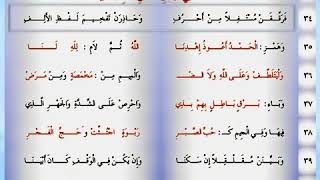 ٣٤ فَرَقِّقَنْ مُسْتَفِلًا مِنْ أَحْرُفِ وَحَاذِرَنْ تَفْخِيمَ لَفْظِ الأَلِفِ
٣٥ وَهَمْزَ : الْحَمْدُ أَعُوذُ إِهْدِنَا اللَّهُ ثُمَّ لاَمَ : لِلَّهِ لَنَا
٣٦ وَلْيَتَلَطَّفْ وَعَلَى اللَّهِ وَلاَ الضْ وَالْمِيمِ مِنْ : مَخْمَصَةٍ وَمِنْ مَرَضْ
٣٧ وَبَاءِ : بَرْقٍ بَاطِلٍ بِهِمْ بِذِي وَاحْرِصْ عَلَى الشِّدَّةِ وَالْجَهْرِ الَّذِي
٣٨ فِيهَا وَفِي الْجِيمِ كَـ : حُبِّ الصَّبْرِ رَبْوَةٍ اجْتُثَّتْ وَحَجِّ الْفَجْرِ
٣٩ وَبَيِّنَنْ مُقَلْقَلًا إِنْ سَكَنَا وَإِنْ يَكُنْ فِي الْوَقْفِ كَانَ أَبْيَنَا